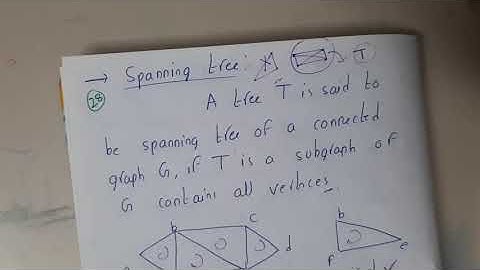 → Spanning tree: T
28
A tree T is said to
be spanning tree of a connected
graph G, if T is a subgraph of
G contains all vertices.
b c
b
d
f e